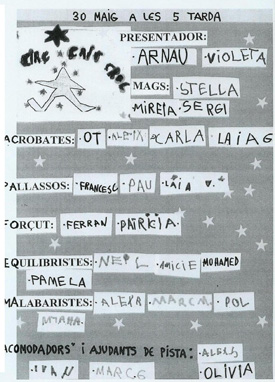 30 MAIG A LES 5 TARDA
PRESENTADOR:
CIRC
·ARNAU ·VIOLETA
MAGS: ·STELLA
MIREIA ·SERGI
ACROBATES: ·OT ·ALEIX CARLA ·LAIA G
PALLASSOS: ·FRANCESC ·PAU LAIA V.
FORÇUT: ·FERRAN PATRÍCIA
EQUILIBRISTES: MOHAMED
·PAMELA
MALABARISTES: ·ALEXA ·MARÇAL ·POL
ACOMODADORS I AJUDANTS DE PISTA: ·ALEIX
·IVAN MARC ·OLIVIA